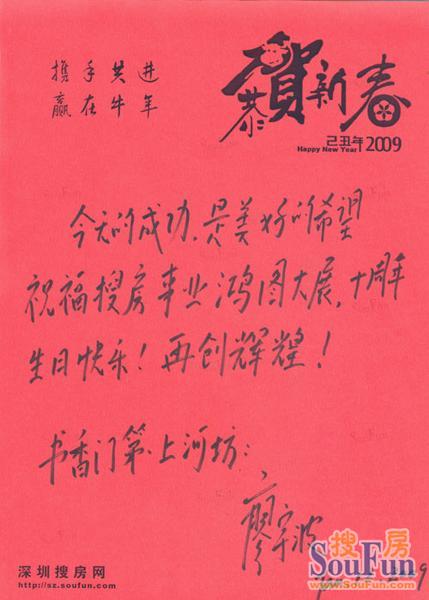 携手共进
赢在牛年
恭贺新春
己丑年
Happy New Year 2009
今天的成功,是美好的希望
祝福搜房事业鸿图大展,十周年
生日快乐!再创辉煌!
书香门第·上河坊:
廖宇波
搜房
SouFun
深圳搜房网
http://sz.soufun.com